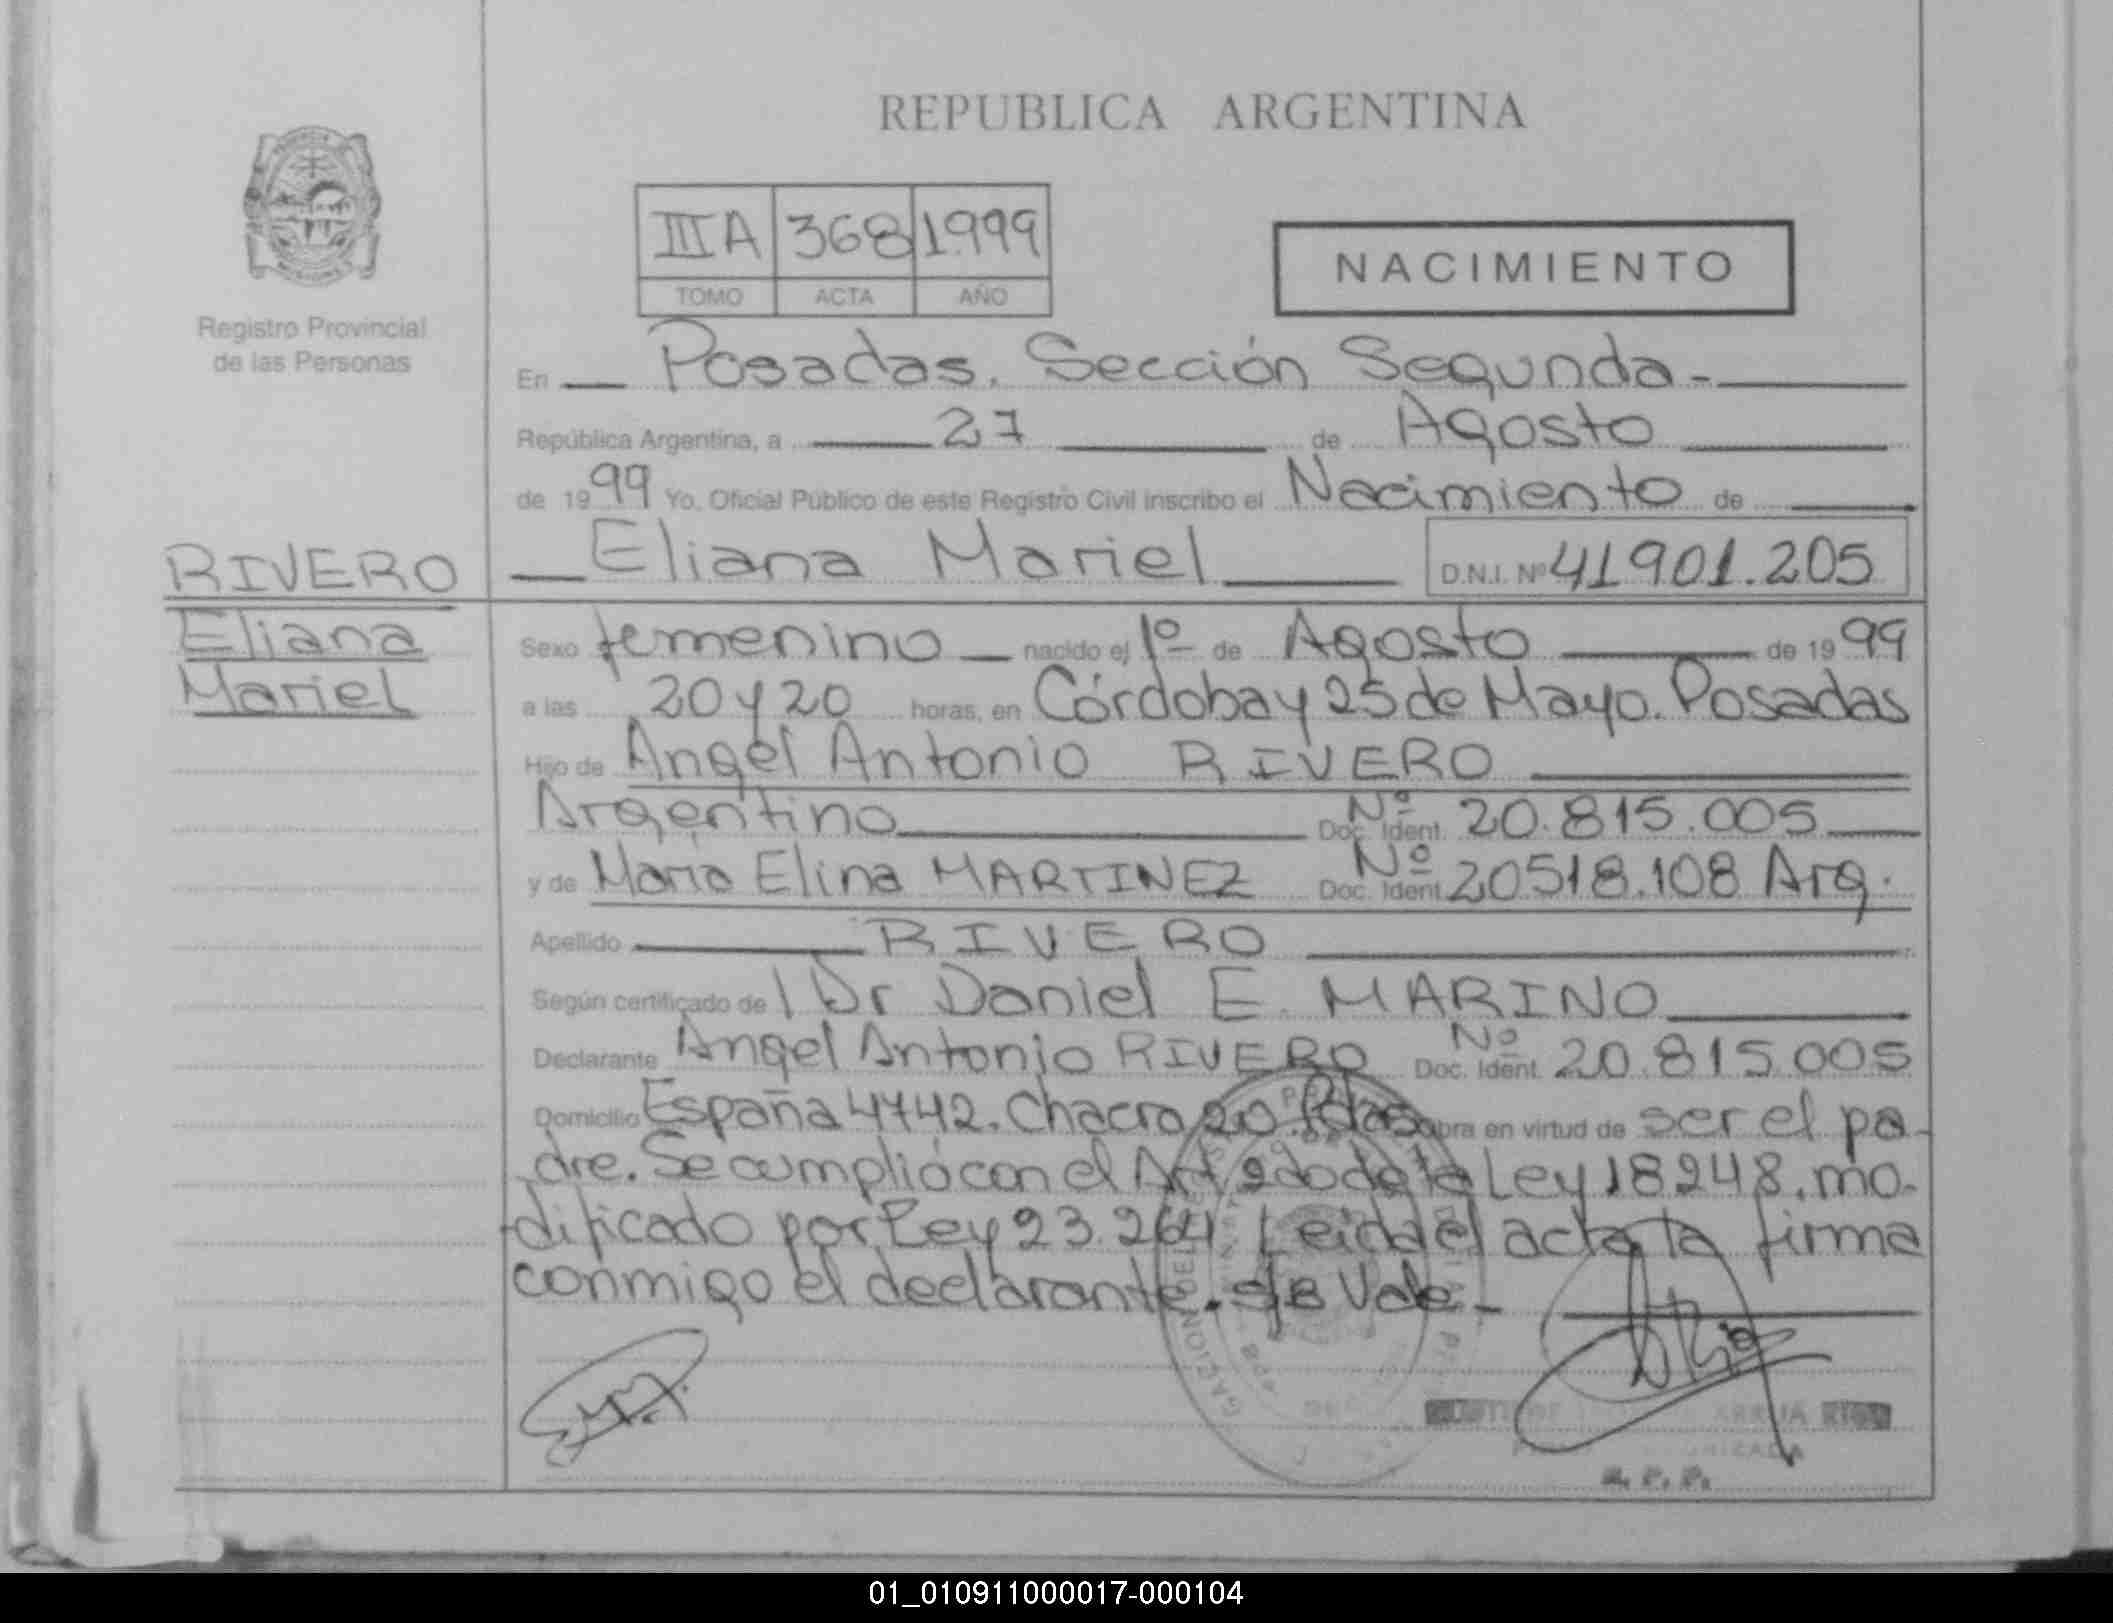 REPUBLICA ARGENTINA
IIIA 368 1.999
TOMO ACTA AÑO
NACIMIENTO
Registro Provincial
de las Personas
En Posadas. Sección Segunda-
República Argentina, a 27 de Agosto
de 1999 Yo, Oficial Público de este Registro Civil inscribo el Nacimiento de
Eliana Mariel D.N.I. Nº 41901.205
RIVERO
Eliana
Mariel
Sexo femenino nacido el 1º de Agosto de 1999
a las 20 y 20 horas, en Córdoba y 25 de Mayo. Posadas
Hijo de Angel Antonio RIVERO
Argentino Doc. Ident. Nº 20.815.005
y de Maria Elina MARTINEZ Doc. Ident. Nº 20518.108 Arg.
Apellido RIVERO
Según certificado de l Dr Daniel E. MARINO
Declarante Angel Antonio RIVERO Doc. Ident. Nº 20.815.005
Domicilio España 4742. Chacra 20. Pdas obra en virtud de ser el pa-
dre. Se cumplió con el Art 2do de la Ley 18248, mo-
dificado por Ley 23.264 Leida el acta la firma
conmigo el declarante. s/B Vale-
R. P. P.
01_010911000017-000104